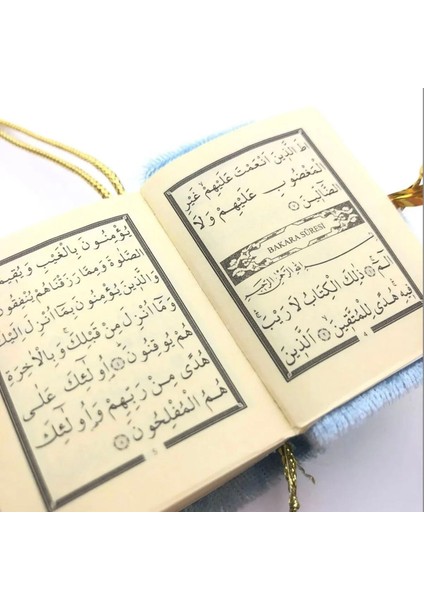 طَ الَّذِينَ اَنْعَمْتَ عَلَيْهِمْ غَيْرِ
الْمَغْضُوبِ عَلَيْهِمْ وَلَا
الضَّالِّينَ ﴿٧﴾
BAKARA SÛRESİ
بِسْمِ اللّٰهِ الرَّحْمٰنِ الرَّحِيمِ
الٓمٓ ﴿١﴾ ذٰلِكَ الْكِتَابُ لَا رَيْبَ ۛ
فِيهِ ۛ هُدًى لِلْمُتَّقِينَ ﴿٢﴾ اَلَّذِينَ
4
يُؤْمِنُونَ بِالْغَيْبِ وَيُقِيمُ
الصَّلٰوةَ وَمِمَّا رَزَقْنَاهُمْ يُنْفِقُونَ
وَالَّذِينَ يُؤْمِنُونَ بِمَٓا اُنْزِلَ اِلَيْكَ
وَمَٓا اُنْزِلَ مِنْ قَبْلِكَ وَبِالْاٰخِرَةِ
هُمْ يُوقِنُونَ ﴿٤﴾ اُولٰٓئِكَ عَلٰى
هُدًى مِنْ رَبِّهِمْ وَاُولٰٓئِكَ
هُمُ الْمُفْلِحُونَ ﴿٥﴾
5